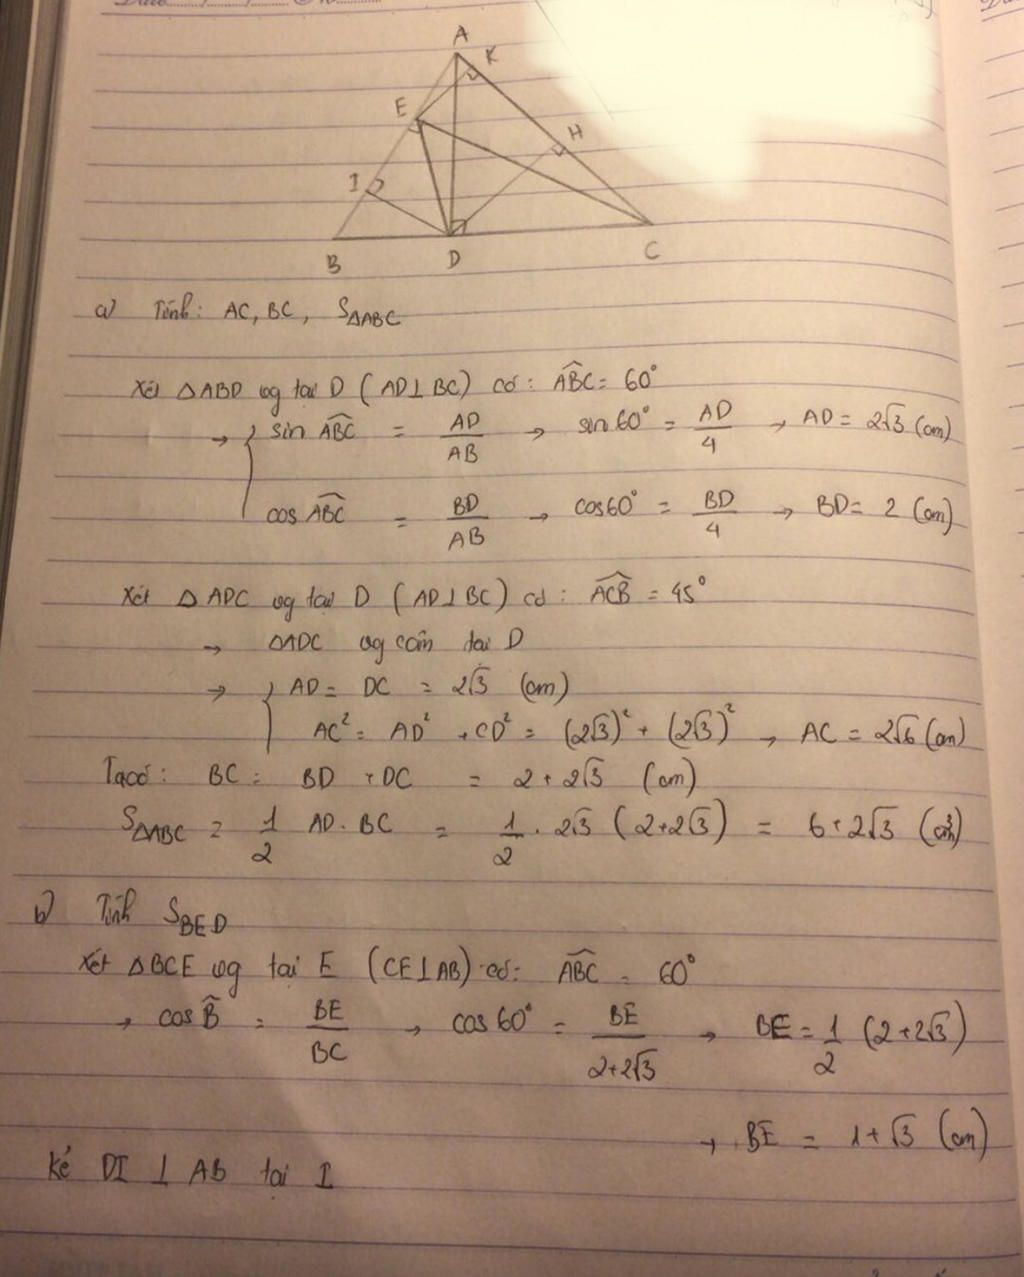 A
K
E
H
I
B
D
C
a) Tính: AC, BC, S△ABC
Xét △ABD vg tại D (AD⊥BC) có: ABC = 60°
→ { sin ABC = AD/AB → sin 60° = AD/4 → AD = 2√3 (cm)
cos ABC = BD/AB → cos60° = BD/4 → BD = 2 (cm)
Xét △ADC vg tại D (AD⊥BC) có: ACB = 45°
→ △ADC vg cân tại D
→ { AD = DC = 2√3 (cm)
AC² = AD² + CD² = (2√3)² + (2√3)² → AC = 2√6 (cm)
Ta có: BC = BD + DC = 2 + 2√3 (cm)
S△ABC = 1/2 AD . BC = 1/2 . 2√3 (2+2√3) = 6+2√3
b) Tính SBED
Xét △BCE vg tại E (CE⊥AB) có: ABC = 60°
→ cos B = BE/BC → cos 60° = BE/2+2√3 → BE = 1/2 (2+2√3)
→ BE = 1+√3 (cm)
Kẻ DI ⊥ AB tại I